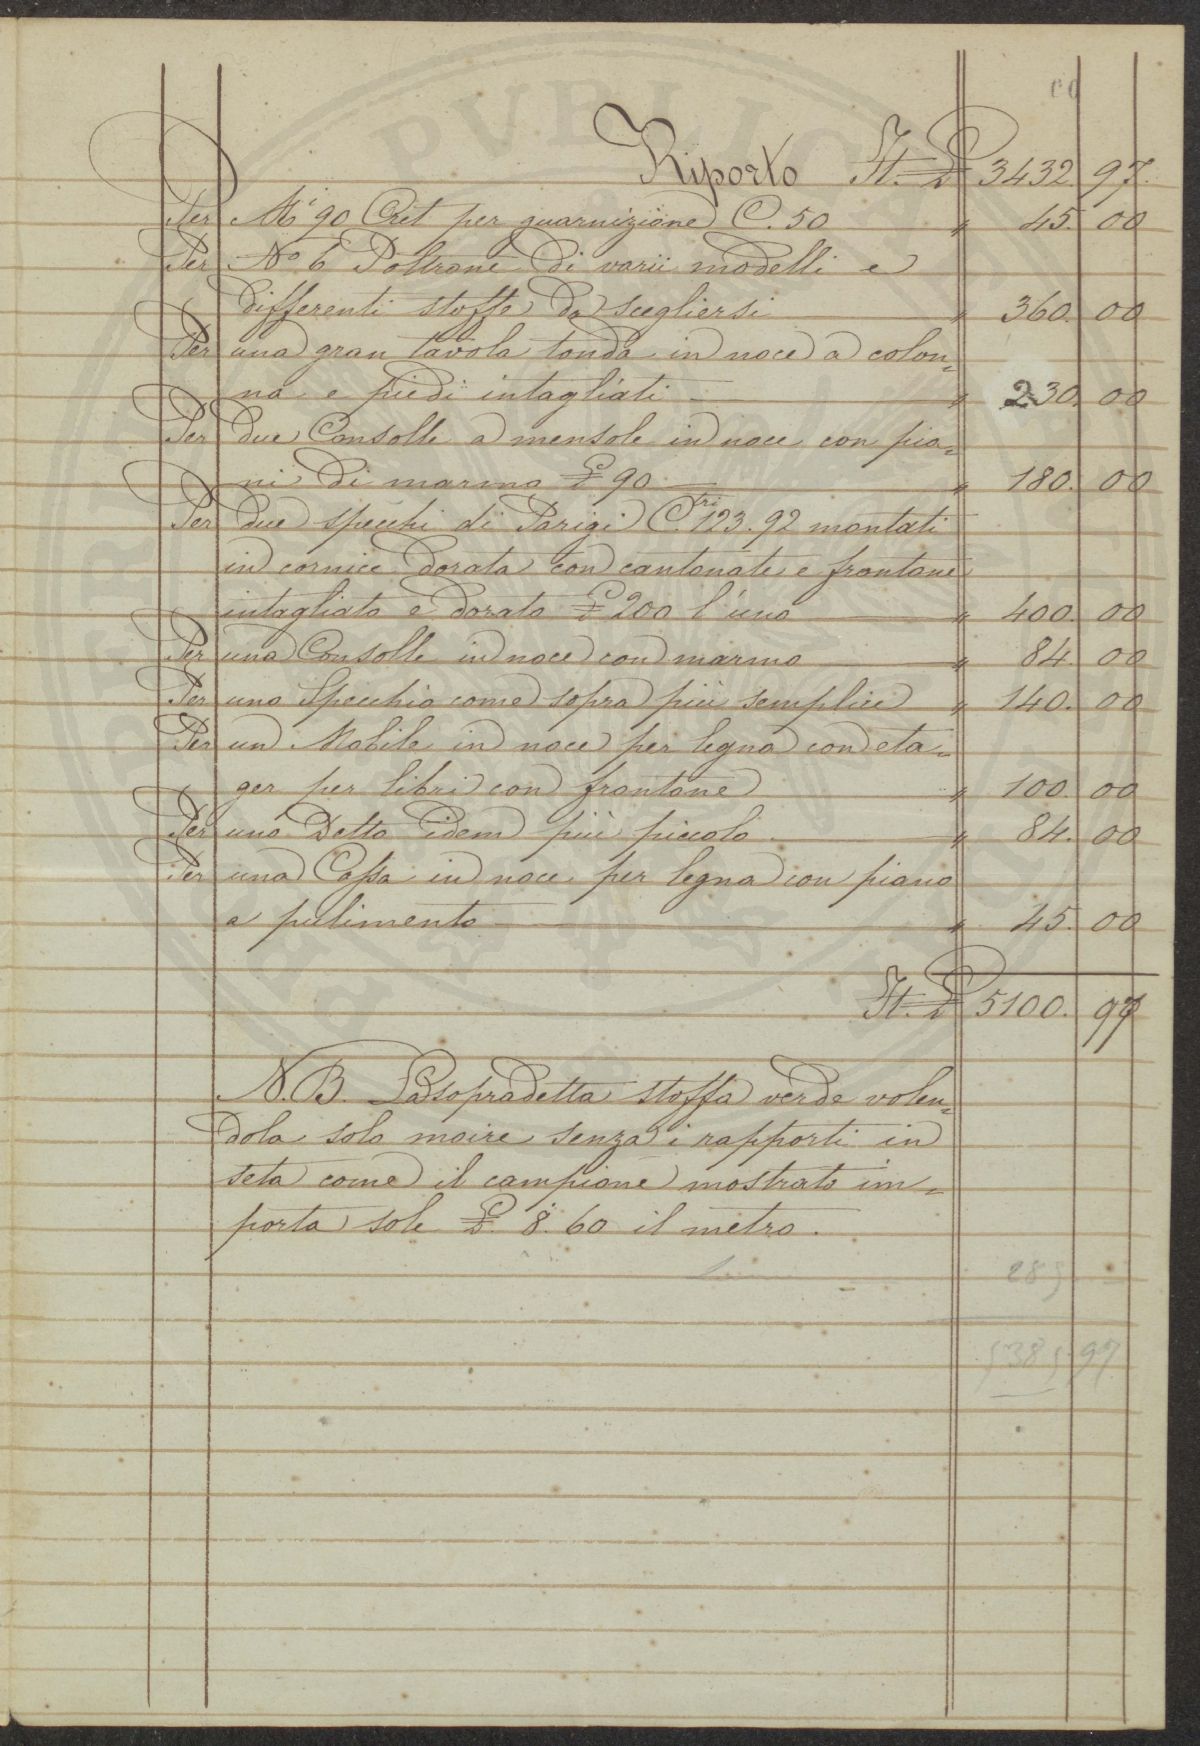 Riporto It. £ 3432. 97.
Per Mi 90 Cret per guarnizione C. 50 " 45. 00
Per No 6 Poltrone di varii modelli e
differenti stoffe da scegliersi " 360. 00
Per una gran tavola tonda in noce a colon=
na e piedi intagliati " 230. 00
Per due Consolle a mensole in noce con pia=
ni di marmo £ 90 " 180. 00
Per due specchi di Parigi C.tri 123. 92 montati
in cornice dorata con cantonate e frontone
intagliato e dorato £ 200 l'uno " 400. 00
Per una Consolle in noce con marmo " 84. 00
Per uno Specchio come sopra più semplice " 140. 00
Per un Mobile in noce per legna con eta=
ger per libri con frontone " 100. 00
Per uno Detto idem più piccolo " 84. 00
Per una Cassa in noce per legna con piano
a pulimento " 45. 00
It. £ 5100. 97
N.B. La sopradetta stoffa verde volen=
dola solo moire senza i rapporti in
seta come il campione mostrato im=
porta sole £. 8. 60 il metro.
285
5385 97